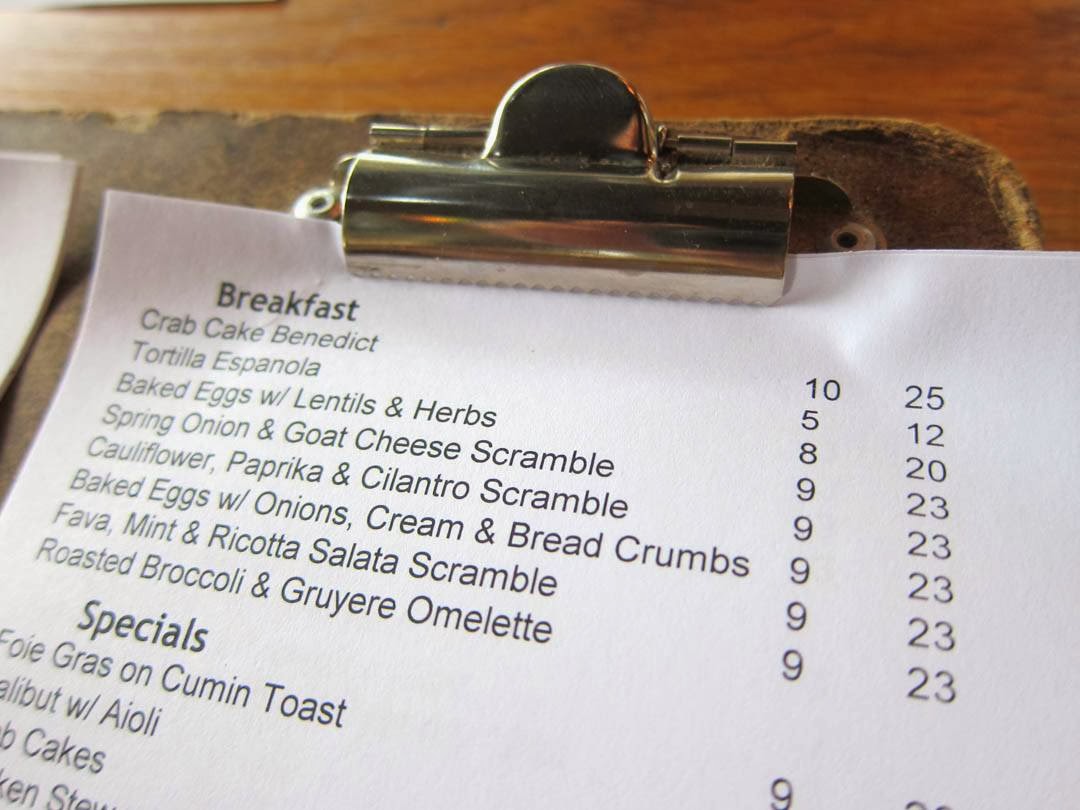 Breakfast
Crab Cake Benedict 10 25
Tortilla Espanola 5 12
Baked Eggs w/ Lentils & Herbs 8 20
Spring Onion & Goat Cheese Scramble 9 23
Cauliflower, Paprika & Cilantro Scramble 9 23
Baked Eggs w/ Onions, Cream & Bread Crumbs 9 23
Fava, Mint & Ricotta Salata Scramble 9 23
Roasted Broccoli & Gruyere Omelette 9 23
Specials
Foie Gras on Cumin Toast 9
alibut w/ Aioli
b Cakes
ken Stew